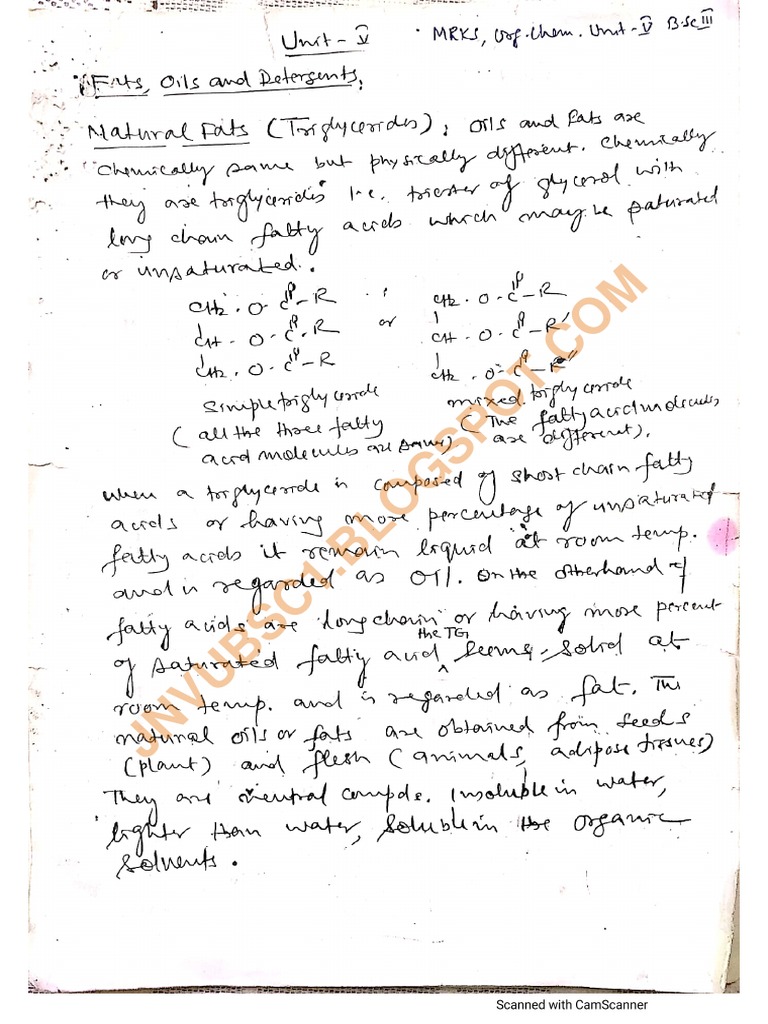 Unit-V
MRKS, Org. Chem. Unit-V B.Sc III
Fats, Oils and Detergents,
Natural Fats (Triglycerides); Oils and Fats are
chemically same but physically different. Chemically
they are triglycerides i.e. triester of glycerol with
long chain fatty acids which may be saturated
or unsaturated.
CH2·O·C-R CH2·O·C-R
CH·O·C·R or CH·O·C-R'
CH2·O·C-R CH2·O·C-R''
Simple triglyceride mixed triglyceride
(all the three fatty (The fatty acid molecules
acid molecules are same) are different),
when a triglyceride is composed of short chain fatty
acids or having more percentage of unsaturated
fatty acids it remain liquid at room temp.
and is regarded as oil. On the otherhand if
fatty acids are long chain or having more percent
of saturated fatty acid the TG seems solid at
room temp. and is regarded as fat. The
natural oils or fats are obtained from seeds
(plant) and flesh (animals, adipose tissues)
They are neutral compds. Insoluble in water,
lighter than water, soluble in the organic
solvents.
JNVUBSC1.BLOGSPOT.COM
Scanned with CamScanner